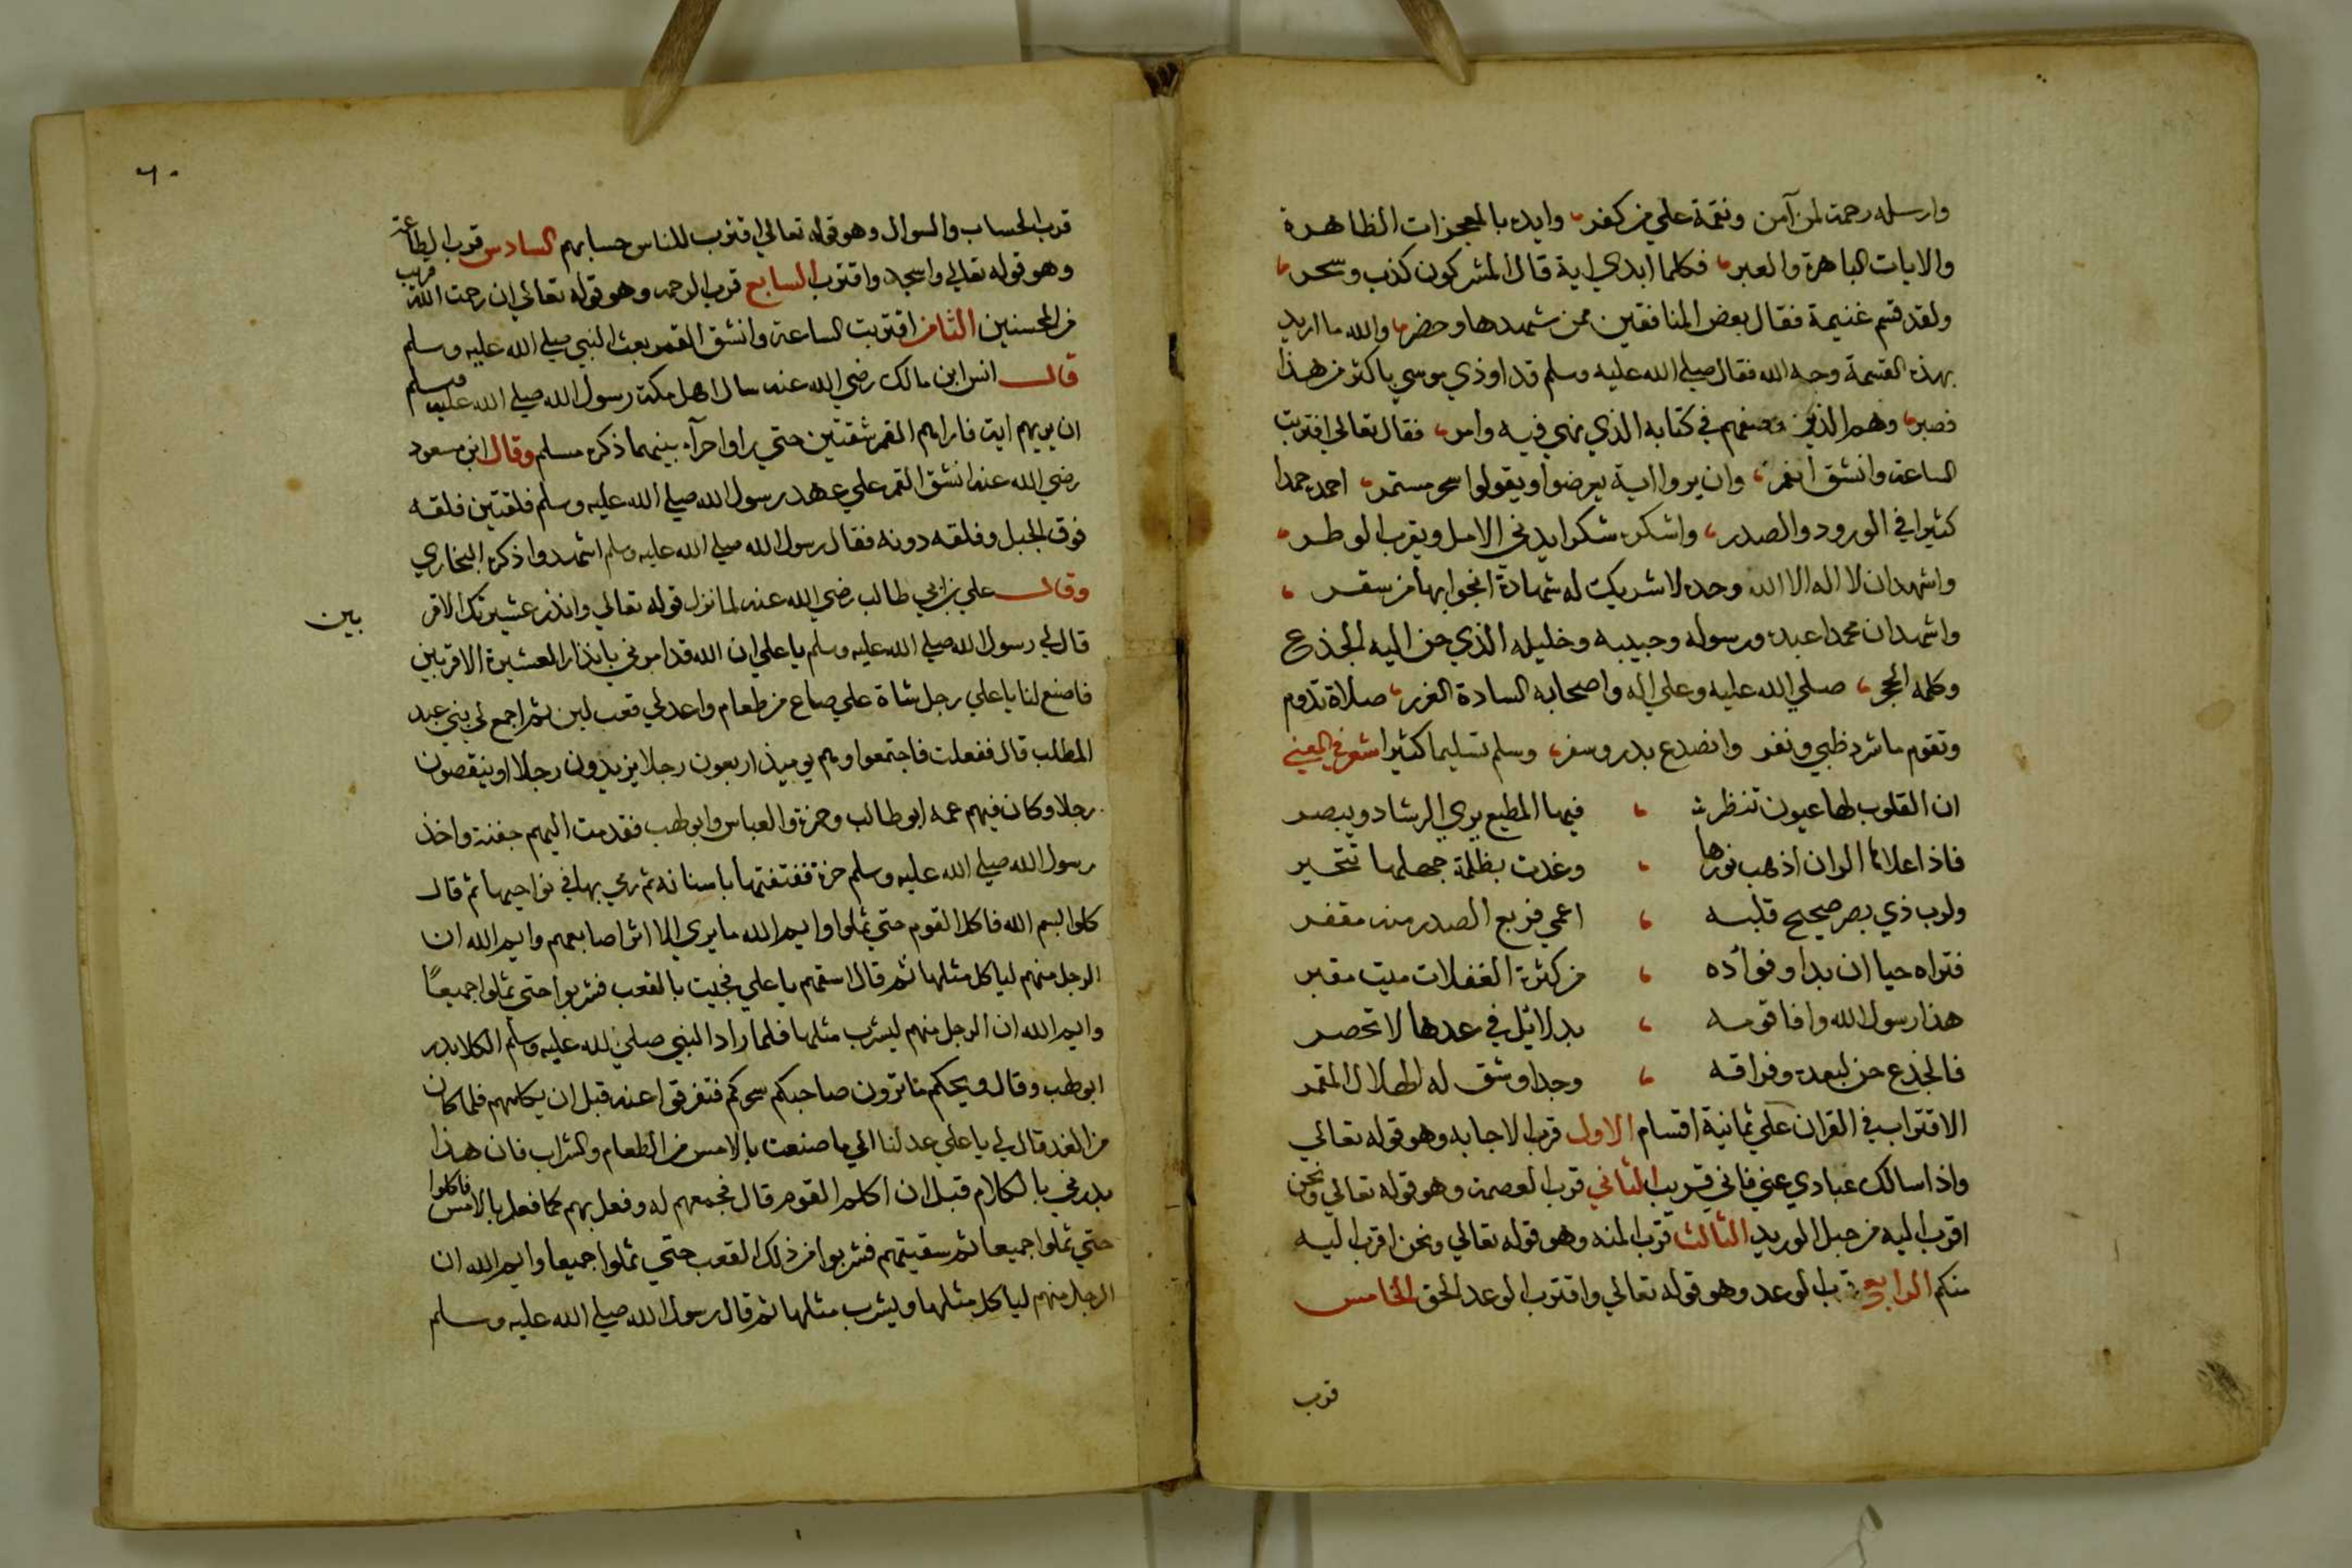 وارسله رحمت لمن آمن ونقمة علي من كفر، وايده بالمعجزات الظاهرة
والايات الباهرة والعبر، فكلما ابدي اية قال المشركون كذب وسحر،
ولقد قسم غنيمة فقال بعض المنافقين ممن شهدها وحضر، والله ما اريد
بهذه القسمة وجه الله فقال صلي الله عليه وسلم قد اوذي موسي باكثر من هذا
فصبر، وهم الذين وصفهم في كتابه الذي نهي فيه وامر، فقال تعالي اقتربت
الساعة وانشق القمر، وان يروا اية يعرضوا ويقولوا سحر مستمر، احمده حمدا
كثيرا في الورود والصدر، واشكره شكرا يدني الامل ويقرب الوطر،
واشهد ان لا اله الا الله وحده لا شريك له شهادة انجوا بها من سقر ،
واشهد ان محمدا عبده ورسوله وحبيبه وخليله الذي حن اليه الجذع
وكلمه الحجر، صلي الله عليه وعلي اله واصحابه السادة الغرر، صلاة تدوم
وتقوم ما شرد ظبي ونفر وانصدع بدر وسفر، وسلم تسليما كثيرا شعر في المعني
ان القلوب لها عيون تنظر ، فيها المطيع يري الرشاد ويبصر
فاذا علاها الران اذهب نورها ، وغدت بظلمة جهلها تتحير
ولرب ذي بصر صحيح قلبه ، اعمي فربع الصدر منه مقفر
فتراه حيا ان بدا وفوأده ، من كثرة الغفلات ميت مقبر
هذا رسول الله وافا قومه ، بدلائل في عدها لا تحصر
فالجذع حن لبعده وفراقه ، وجدا وشق له الهلال المقمر
الاقتراب في القران علي ثمانية اقسام الاول قرب الاجابه وهو قوله تعالي
واذا سالك عبادي عني فاني قريب الثاني قرب العصمة وهو قوله تعالي ونحن
اقرب اليه من حبل الوريد الثالث قرب المنه وهو قوله تعالي ونحن اقرب اليه
منكم الرابع قرب الوعد وهو قوله تعالي واقترب الوعد الحق الخامس
قرب
٦٠
قرب الحساب والسوال وهو قوله تعالي اقترب للناس حسابهم السادس قرب الطاعة
وهو قوله تعالي واسجد واقترب السابع قرب الرحمه وهو قوله تعالي ان رحمت الله قريب
من المحسنين الثامن اقتربت الساعة وانشق القمر بعث النبي صلي الله عليه وسلم
قال انس ابن مالك رضي الله عنه سال اهل مكة رسول الله صلي الله عليه وسلم
ان يريهم اية فاراهم القمر شقتين حتي راوا حرآء بينهما ذكره مسلم وقال ابن مسعود
رضي الله عنه انشق القمر علي عهد رسول الله صلي الله عليه وسلم فلقتين فلقه
فوق الجبل وفلقه دونه فقال رسول الله صلي الله عليه وسلم اشهدوا ذكره البخاري
وقال علي بن ابي طالب رضي الله عنه لما نزل قوله تعالي وانذر عشيرتك الاقر بين
قال لي رسول الله صلي الله عليه وسلم يا علي ان الله قد امرني بانذار العشيرة الاقربين
فاصنع لنا يا علي رجل شاة علي صاع من طعام واعد لي قعب لبن ثم اجمع لي بني عبد
المطلب قال ففعلت فاجتمعوا وهم يوميذ اربعون رجلا يزيدون رجلا او ينقصون
رجلا وكان فيهم عمه ابو طالب وحمزة والعباس وابو لهب فقدمت اليهم جفنة واخذ
رسول الله صلي الله عليه وسلم حزة ففتفتها باسنانه ثم رمي بها في نواحيها ثم قال
كلوا بسم الله فاكل القوم حتي تملوا وايم الله ما يري الا اثر اصابعهم وايم الله ان
الرجل منهم لياكل مثلها ثم قال اسقهم يا علي فجيت بالقعب فشربوا حتي تملوا جميعًا
وايم الله ان الرجل منهم ليشرب مثلها فلما راد النبي صلي الله عليه وسلم الكلام بدر
ابو لهب وقال ويحكم ما ترون صاحبكم سحركم فتفرقوا عنه قبل ان يكلمهم فلما كان
من الغد قال لي يا علي عد لنا الي ما صنعت بالامس من الطعام والشراب فان هذا
بدرني بالكلام قبل ان اكلم القوم قال فجمعهم له وفعل بهم كما فعل بالامس فاكلوا
حتي تملوا جميعا ثم سقيتهم فشربوا من ذلك القعب حتي تملوا جميعا وايم الله ان
الرجل منهم لياكل مثلها ويشرب مثلها ثم قال رسول الله صلي الله عليه وسلم